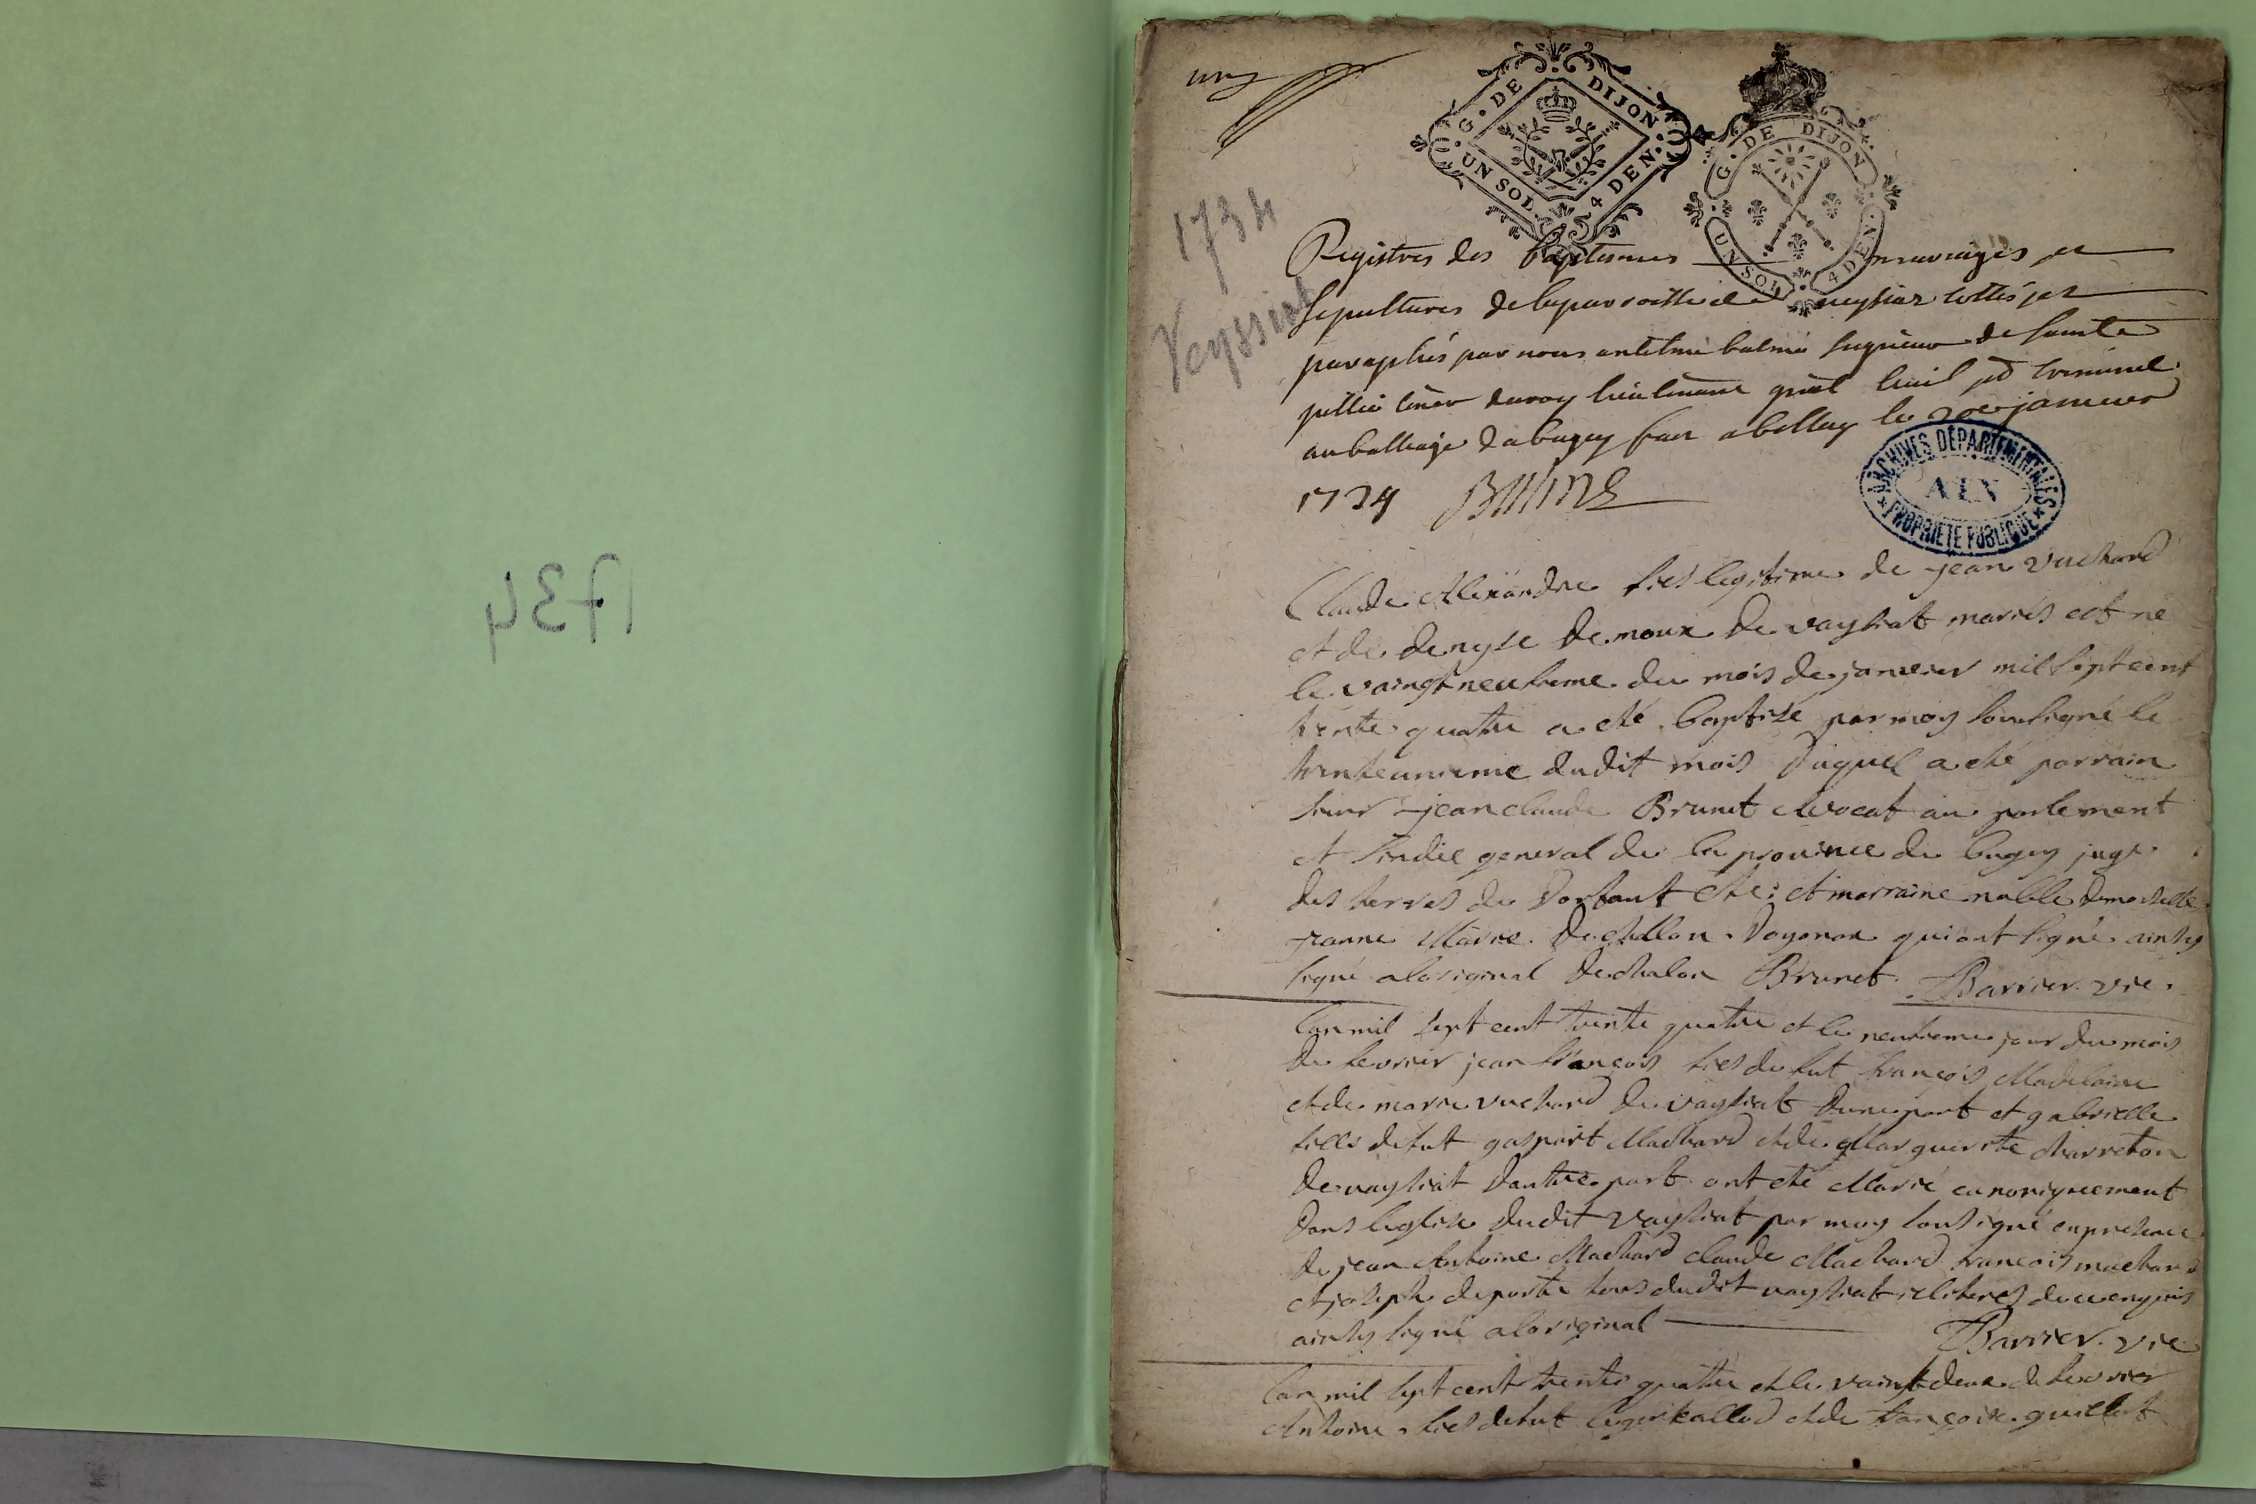 1734
un
G. DE DIJON.
UN SOL 4 DEN.
G. DE DIJON
UN SOL 4 DEN.
1734
Veyssiat
Registres des baptesmes mariages et
sepultures de la parroisse de veysiaz cottés et
paraphés par nous antelme balme seigneur de sainte
jullie du roy lieutenant gnal civil et criminel
au balliage du bugey fait a belley le janvier
1734 Balme
ARCHIVES DÉPARTEMENTALES
AIN
PROPRIÉTÉ PUBLIQUE
Claude Alexandre fils legitime de jean vuchard
et de denyse demoux de vaysiat mariés est né
le vaingt neufieme du mois de janvier mil sept cent
trente quatre a eté baptisé par moy soussigné le
trenteunieme dudit mois duquel a eté parrain
sieur jean claude Brunet Avocat au parlement
et sindic general de la province de bugey juge
des terres de Dortant etc: et marraine noble demoiselle
jeanne Marie De Chillon Doyonax qui ont signé ainsy
signé a loriginal De chalon Brunet. Barrier. vic.
Lan mil sept cent trente quatre et le neufieme jour du mois
de fevrier jean françois fils de fut françois Madelaine
et de marie vuchard de vaysiat dune part et gabrielle
fille de fut gaspart Machard et de Marguerite charreton
de vaysiat dautre part ont eté Marié canoniquement
dans leglise dudit vaysiat par moy sousigné en presence
de jean Antoine Machard claude Machard françois machard
et joseph deporte tous dudit vaysiat iliteres de ce enquis
ainsy signé a loriginal Barrier. vic
Lan mil sept cent trente quatre et le vaingt deux de fevrier
Antoine fils de fut et de françoise guillot